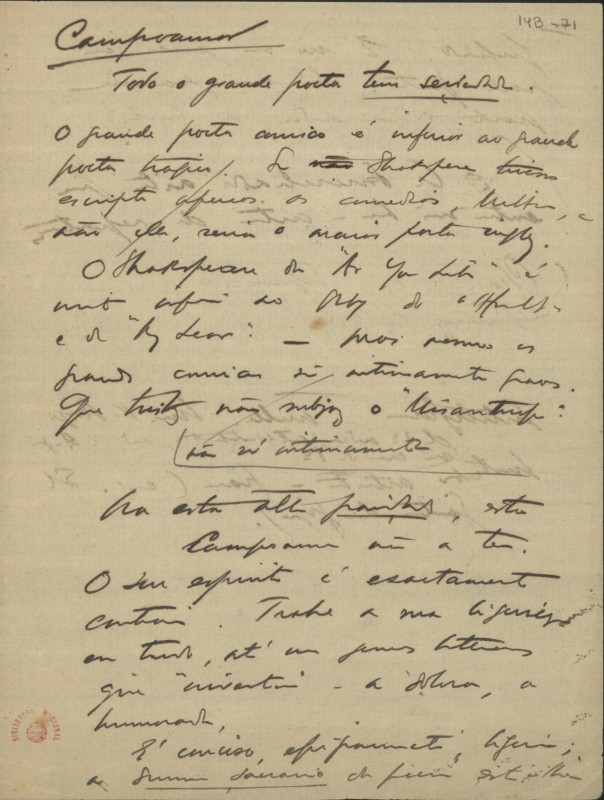 14B - 71
Campoamor
Todo o grande poeta tem seriedade.
O grande poeta comico é inferior ao grande
poeta tragico. Se não Shakespere tivesse
escripto apenas as comedias, Milton, e
não elle, seria o maior poeta inglez.
O Shakespeare do "As You Like" é
muito inferior ao do "Hamlet"
e do "King Lear". — Mas mesmo os
grandes comicos são intimamente graves.
Que tristeza não subjaz o "Misanthrope".
não só intimamente
Ora esta alta gravidade, esta
Campoamor não a tem.
O seu espirito é exactamente
contrario. Trahe a sua ligeireza
em tudo, até nos generos litterarios
que "inventou" - a dolora, a
humorada.
É conciso, epigrammatico, ligeiro;
a
BIBLIOTECA NACIONAL